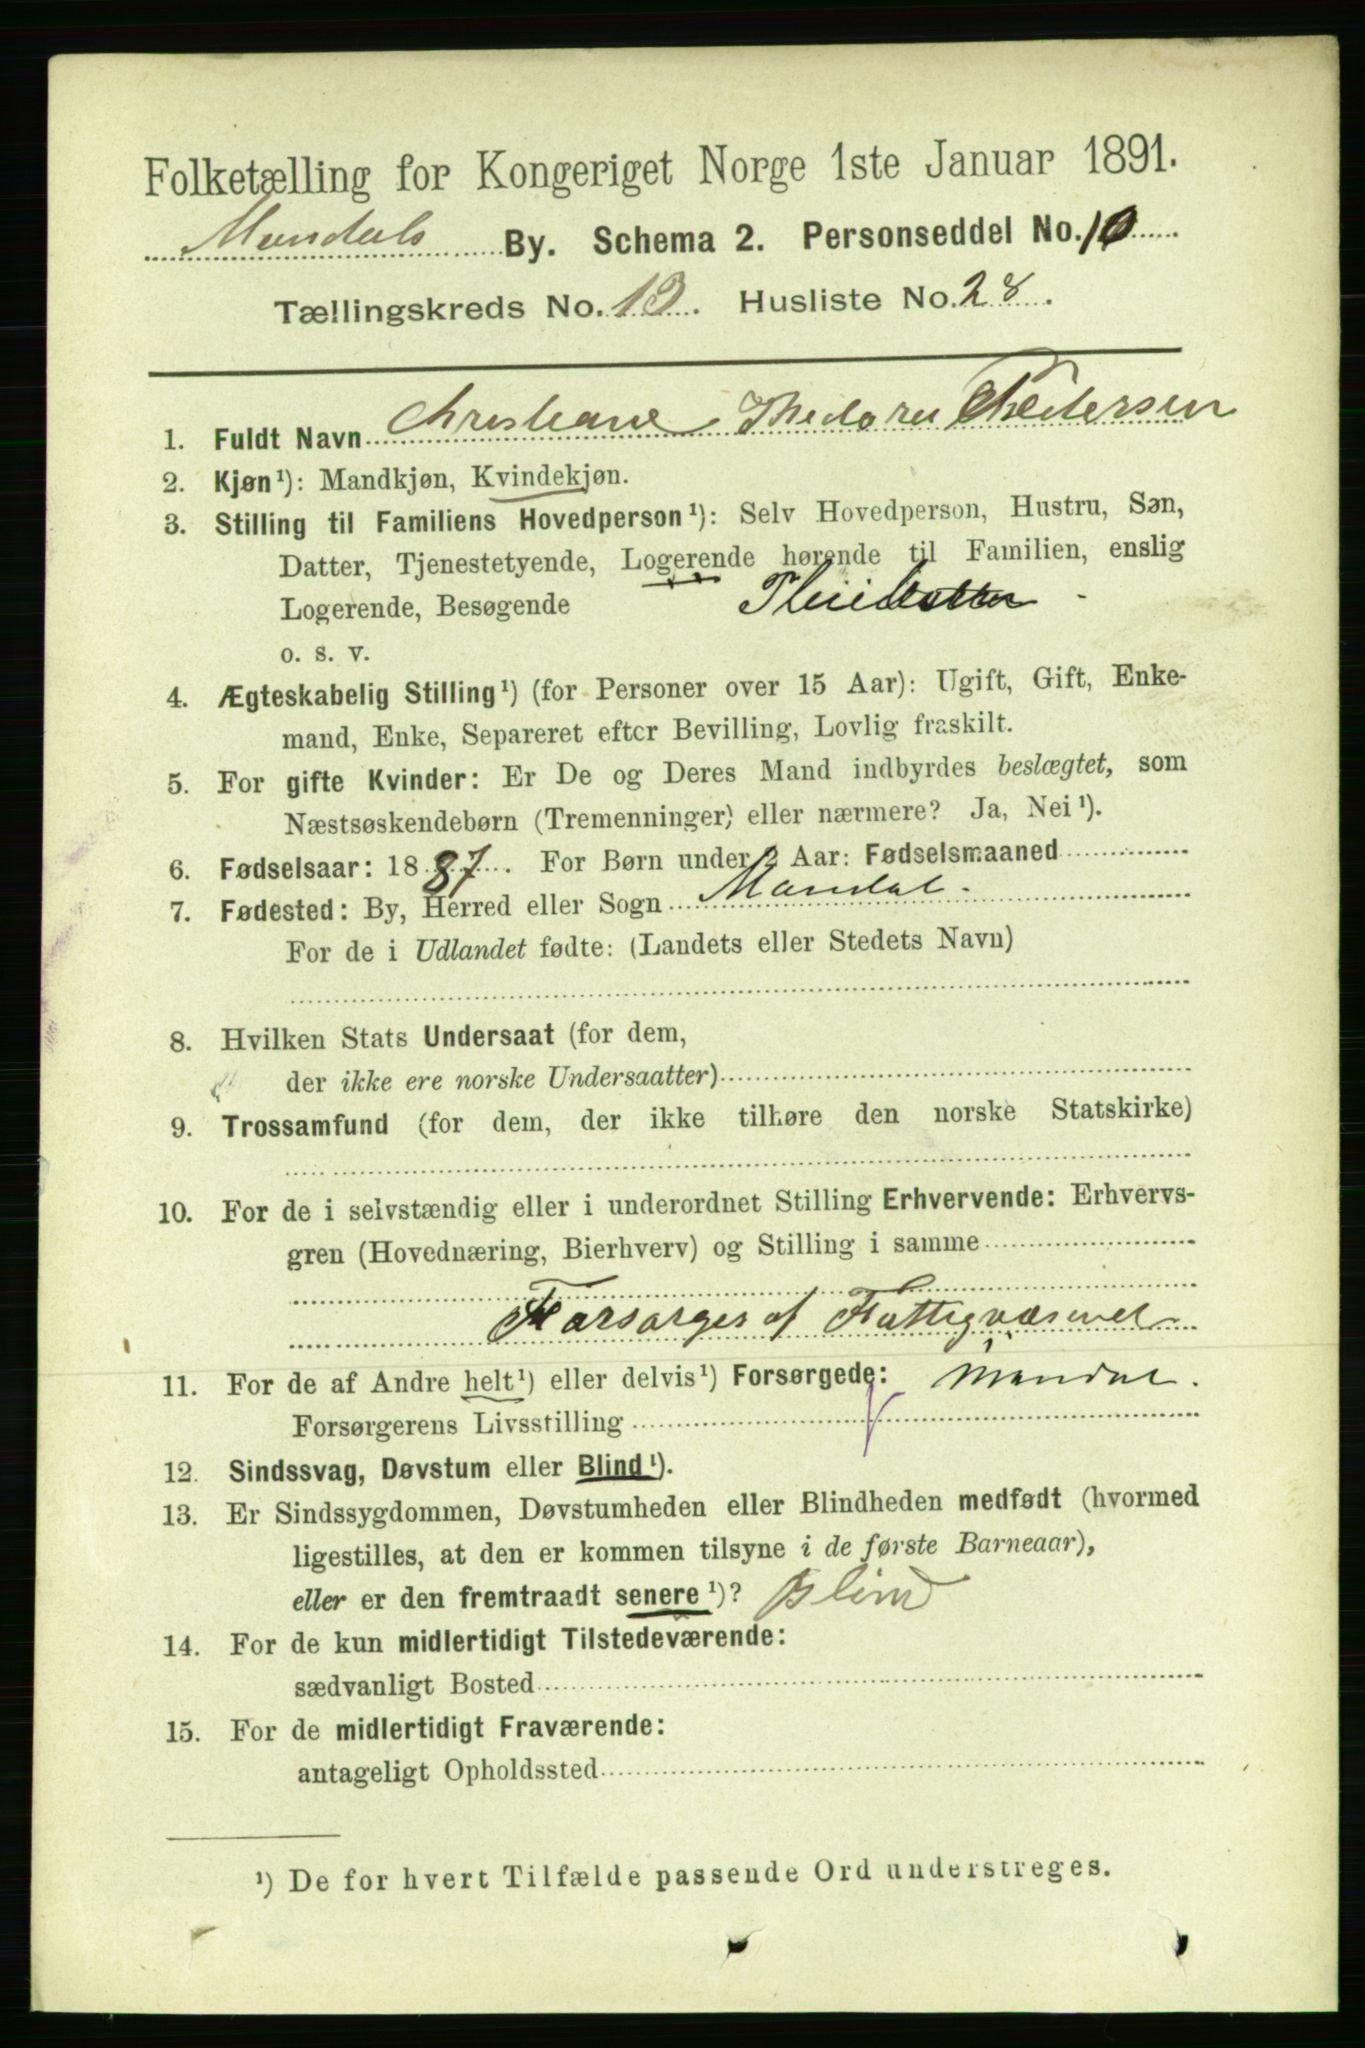 Folketælling for Kongeriget Norge 1ste Januar 1891.
Mandals By. Schema 2. Personseddel No. 10
Tællingskreds No. 13. Husliste No. 28.
1. Fuldt Navn Christiane Thedora Pedersen
2. Kjøn¹): Mandkjøn, Kvindekjøn.
3. Stilling til Familiens Hovedperson¹): Selv Hovedperson, Hustru, Søn,
Datter, Tjenestetyende, Logerende hørende til Familien, enslig
Logerende, Besøgende Pleiedatter -
o. s. v.
4. Ægteskabelig Stilling¹) (for Personer over 15 Aar): Ugift, Gift, Enke-
mand, Enke, Separeret efter Bevilling, Lovlig fraskilt.
5. For gifte Kvinder: Er De og Deres Mand indbyrdes beslægtet, som
Næstsøskendebørn (Tremenninger) eller nærmere? Ja, Nei¹).
6. Fødselsaar: 1887. For Børn under 2 Aar: Fødselsmaaned
7. Fødested: By, Herred eller Sogn Mandal.
For de i Udlandet fødte: (Landets eller Stedets Navn)
8. Hvilken Stats Undersaat (for dem,
der ikke ere norske Undersaatter)
9. Trossamfund (for dem, der ikke tilhøre den norske Statskirke)
10. For de i selvstændig eller i underordnet Stilling Erhvervende: Erhvervs-
gren (Hovednæring, Bierhverv) og Stilling i samme
Forsørges af Fattigvæsenet
11. For de af Andre helt¹) eller delvis¹) Forsørgede: i Mandal.
Forsørgerens Livsstilling
12. Sindssvag, Døvstum eller Blind¹).
13. Er Sindssygdommen, Døvstumheden eller Blindheden medfødt (hvormed
ligestilles, at den er kommen tilsyne i de første Barneaar),
eller er den fremtraadt senere¹)? Blind
14. For de kun midlertidigt Tilstedeværende:
sædvanligt Bosted
15. For de midlertidigt Fraværende:
antageligt Opholdssted
¹) De for hvert Tilfælde passende Ord understreges.